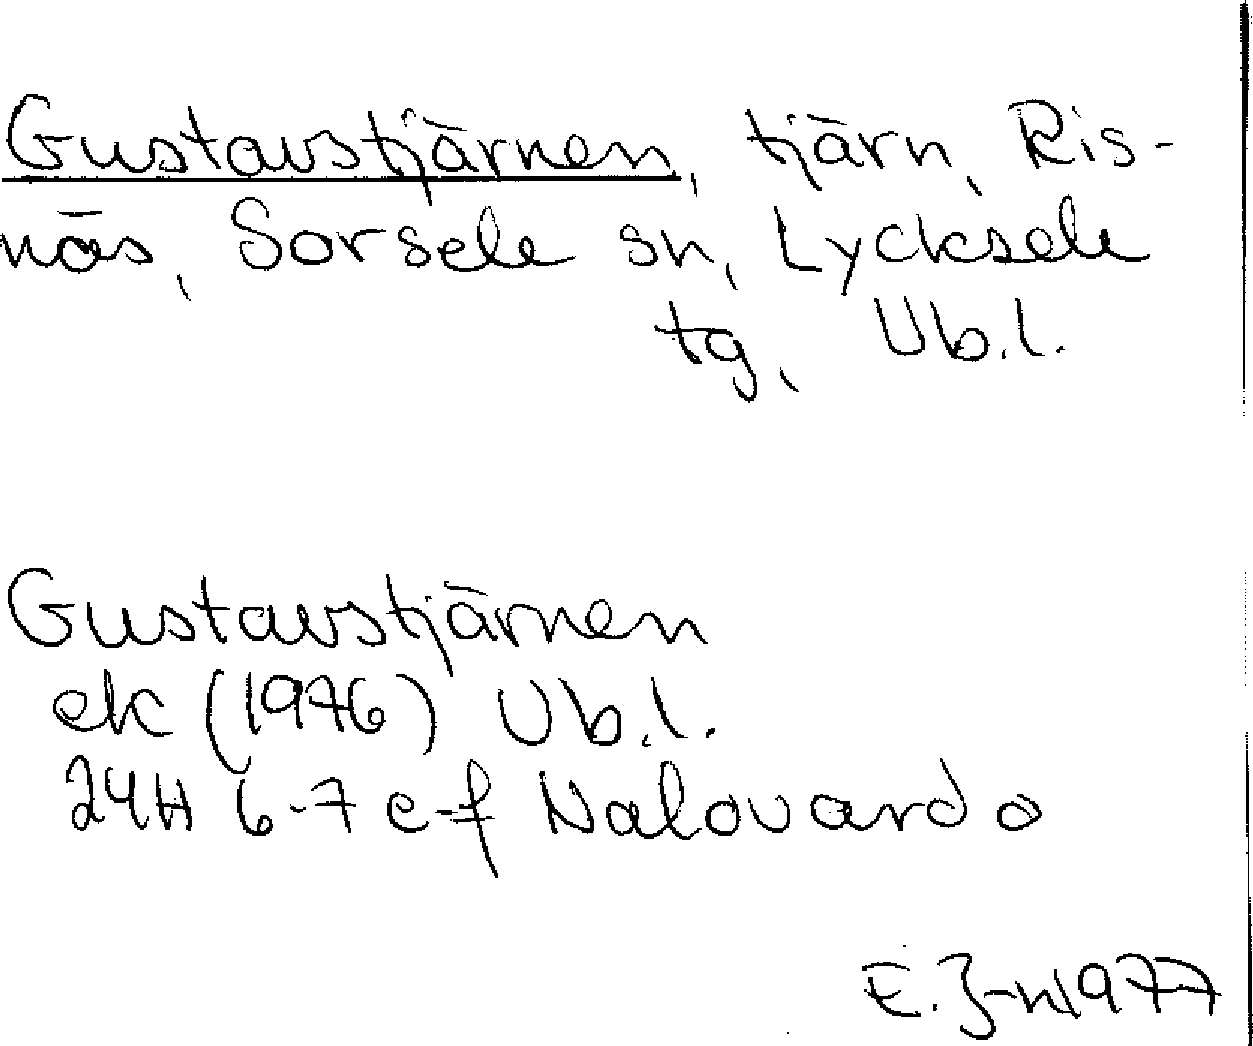 Gustavstjärnen, tjärn, Ris-
näs, Sorsele sn, Lycksele
tg, Ub.l.
Gustavstjärnen
ek (1976) Ub.l.
24H 6-7 e-f Nalovardo
E. J-n 1977